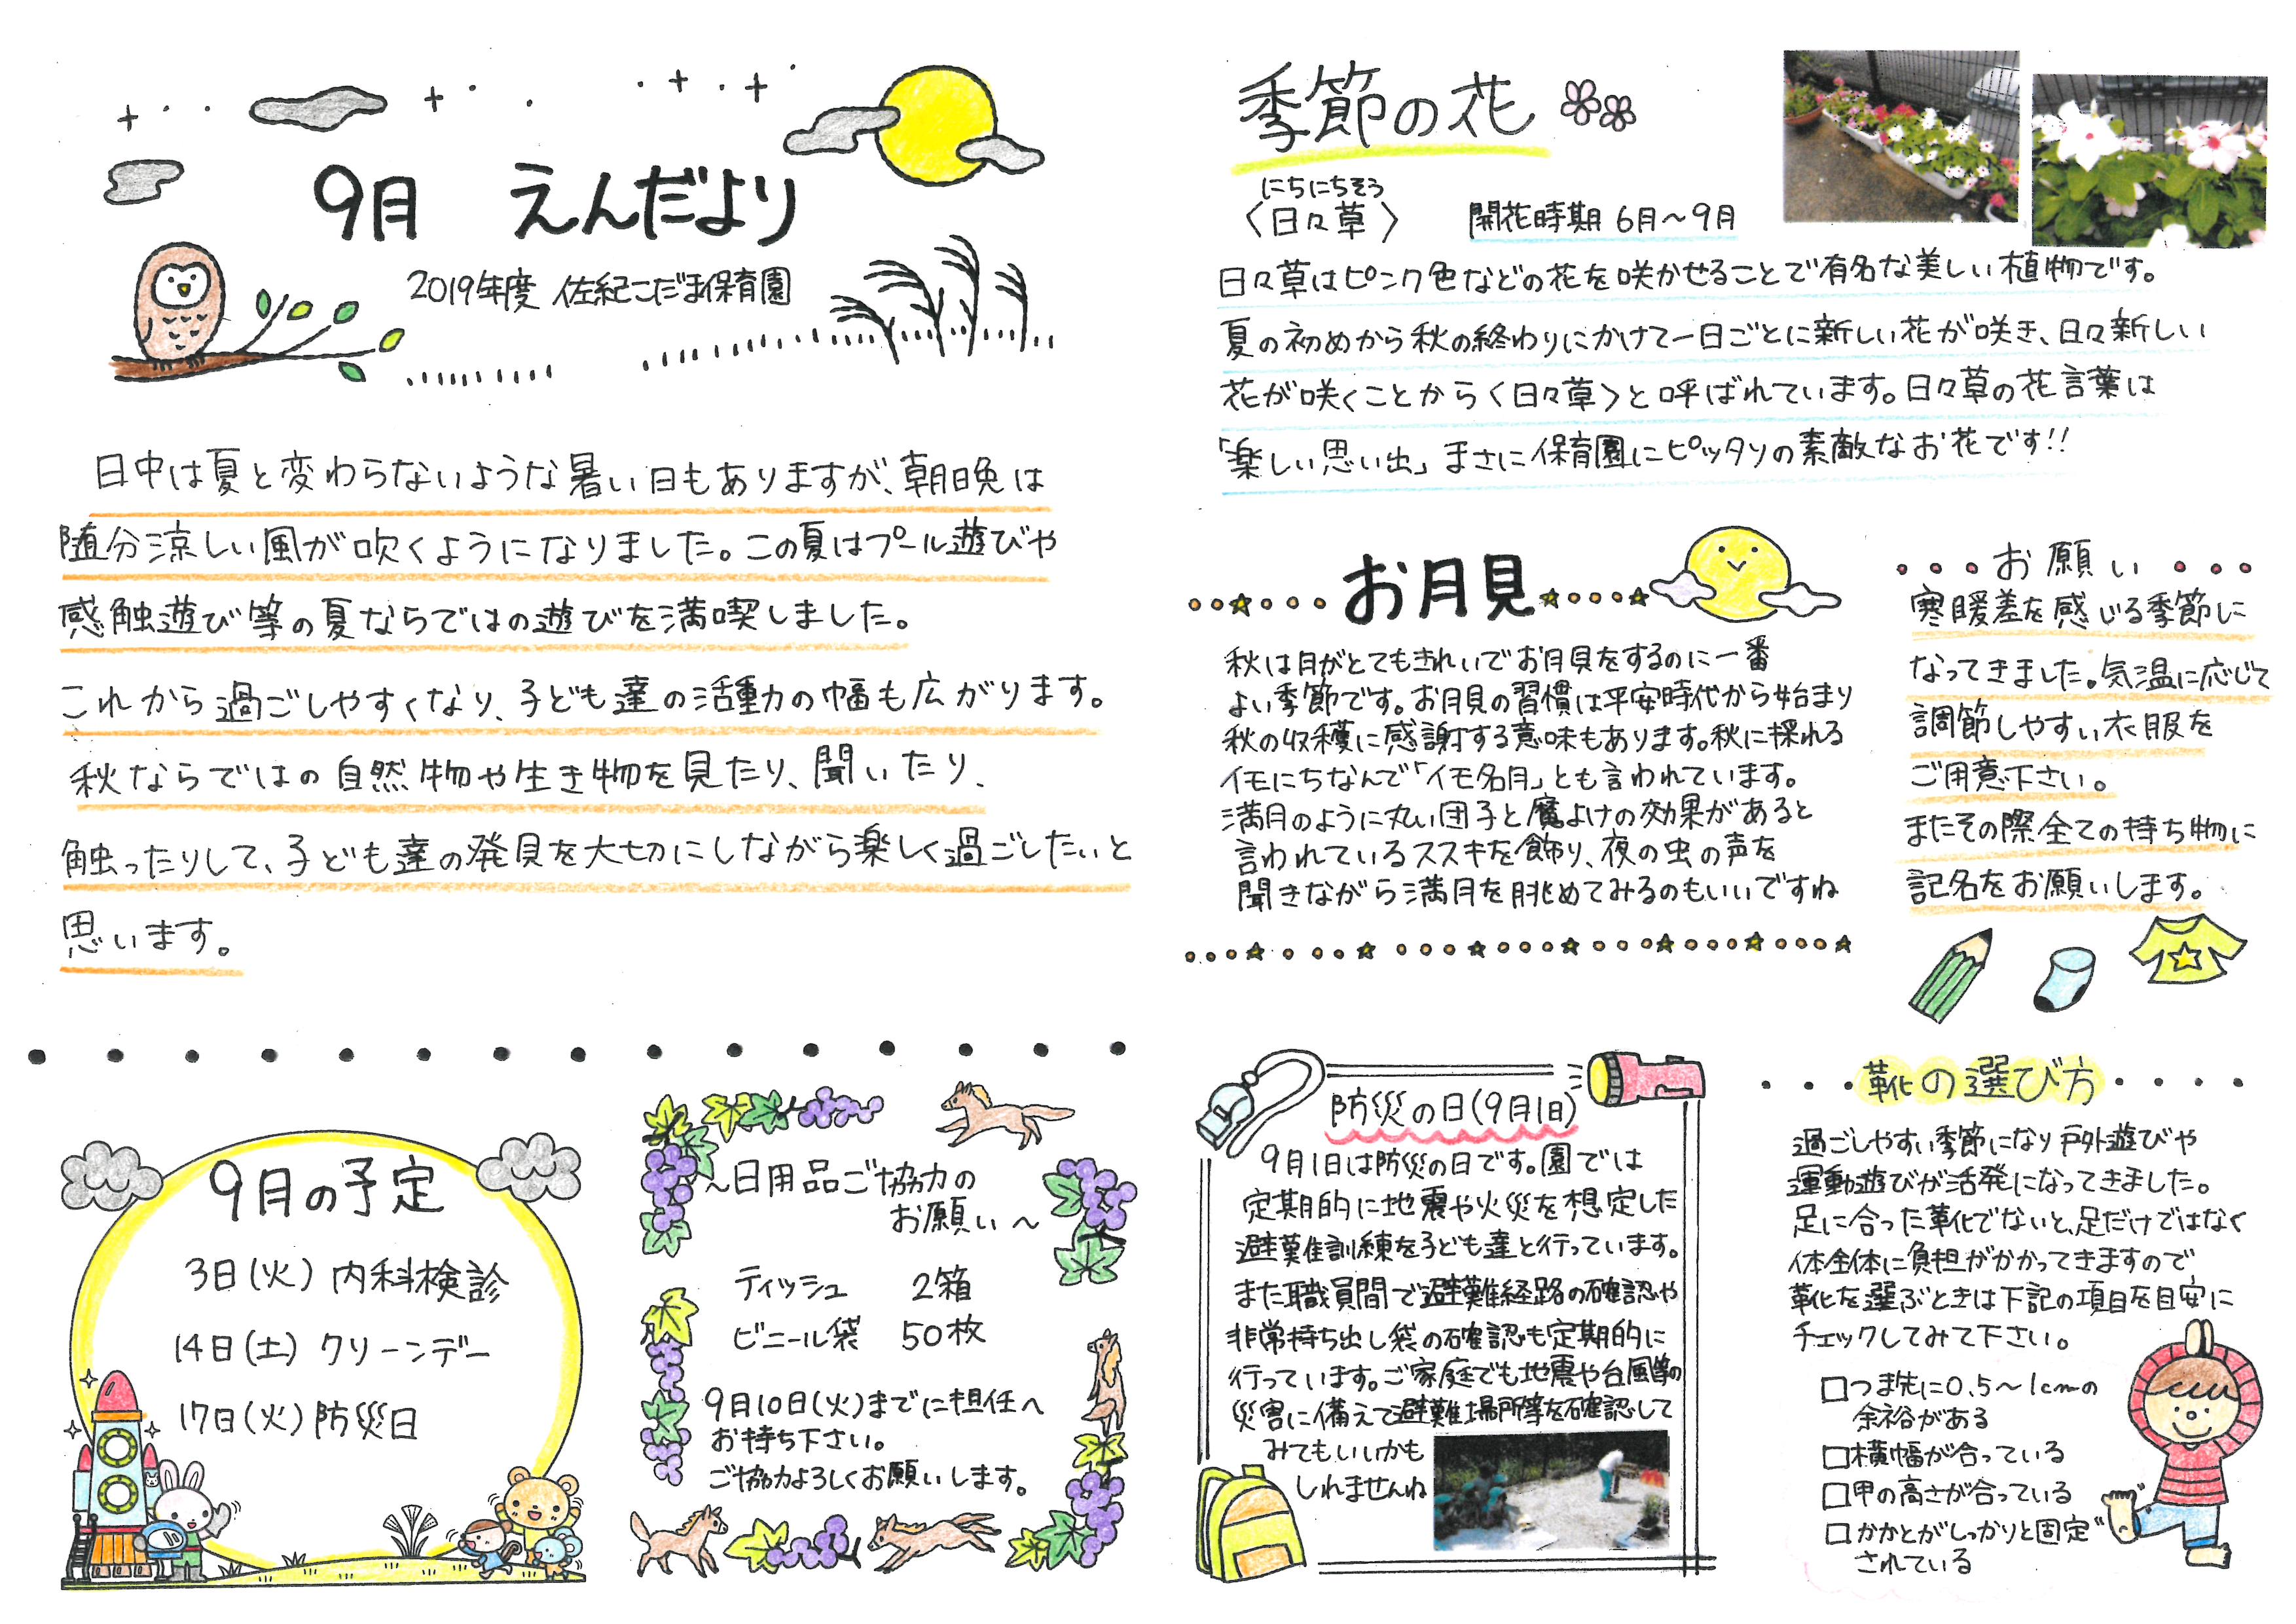 9月 えんだより
2019年度 佐紀こだま保育園
日中は夏と変わらないような暑い日もありますが、朝晩は
随分涼しい風が吹くようになりました。この夏はプール遊びや
感触遊び等の夏ならではの遊びを満喫しました。
これから過ごしやすくなり、子ども達の活動の幅も広がります。
秋ならではの自然物や生き物を見たり、聞いたり、
触ったりして、子ども達の発見を大切にしながら楽しく過ごしたいと
思います。
9月の予定
3日(火) 内科検診
14日(土) クリーンデー
17日(火) 防災日
~日用品ご協力の
お願い~
ティッシュ 2箱
ビニール袋 50枚
9月10日(火)までに担任へ
お持ち下さい。
ご協力よろしくお願いします。
季節の花
にちにちそう
〈日々草〉 開花時期 6月~9月
日々草はピンク色などの花を咲かせることで有名な美しい植物です。
夏の初めから秋の終わりにかけて一日ごとに新しい花が咲き、日々新しい
花が咲くことから〈日々草〉と呼ばれています。日々草の花言葉は
「楽しい思い出」まさに保育園にピッタリの素敵なお花です!!
お月見
秋は月がとてもきれいでお月見をするのに一番
よい季節です。お月見の習慣は平安時代から始まり
秋の収穫に感謝する意味もあります。秋に採れる
イモにちなんで「イモ名月」とも言われています。
満月のように丸い団子と魔よけの効果があると
言われているススキを飾り、夜の虫の声を
聞きながら満月を眺めてみるのもいいですね
お願い
寒暖差を感じる季節に
なってきました。気温に応じて
調節しやすい衣服を
ご用意下さい。
またその際全ての持ち物に
記名をお願いします。
防災の日(9月1日)
9月1日は防災の日です。園では
定期的に地震や火災を想定した
避難訓練を子ども達と行っています。
また職員間で避難経路の確認や
非常持ち出し袋の確認も定期的に
行っています。ご家庭でも地震や台風等の
災害に備えて避難場所等を確認して
みてもいいかも
しれませんね
靴の選び方
過ごしやすい季節になり戸外遊びや
運動遊びが活発になってきました。
足に合った靴でないと、足だけではなく
体全体に負担がかかってきますので
靴を選ぶときは下記の項目を目安に
チェックしてみて下さい。
□つま先に0.5~1cmの
余裕がある
□横幅が合っている
□甲の高さが合っている
□かかとがしっかりと固定
されている